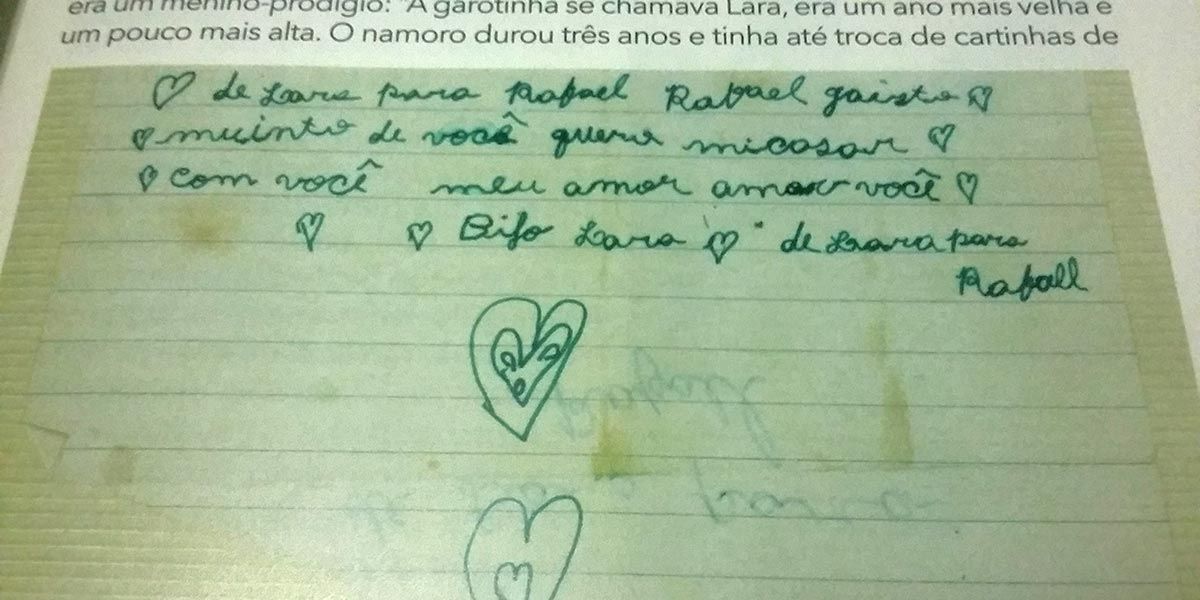 era um menino-prodígio: "A garotinha se chamava Lara, era um ano mais velha e
um pouco mais alta. O namoro durou três anos e tinha até troca de cartinhas de
de Lara para Rafael Rafael gaisto
muinto de você quero micasar
com você meu amor amor você
Bifo Lara de Lara para
Rafaell